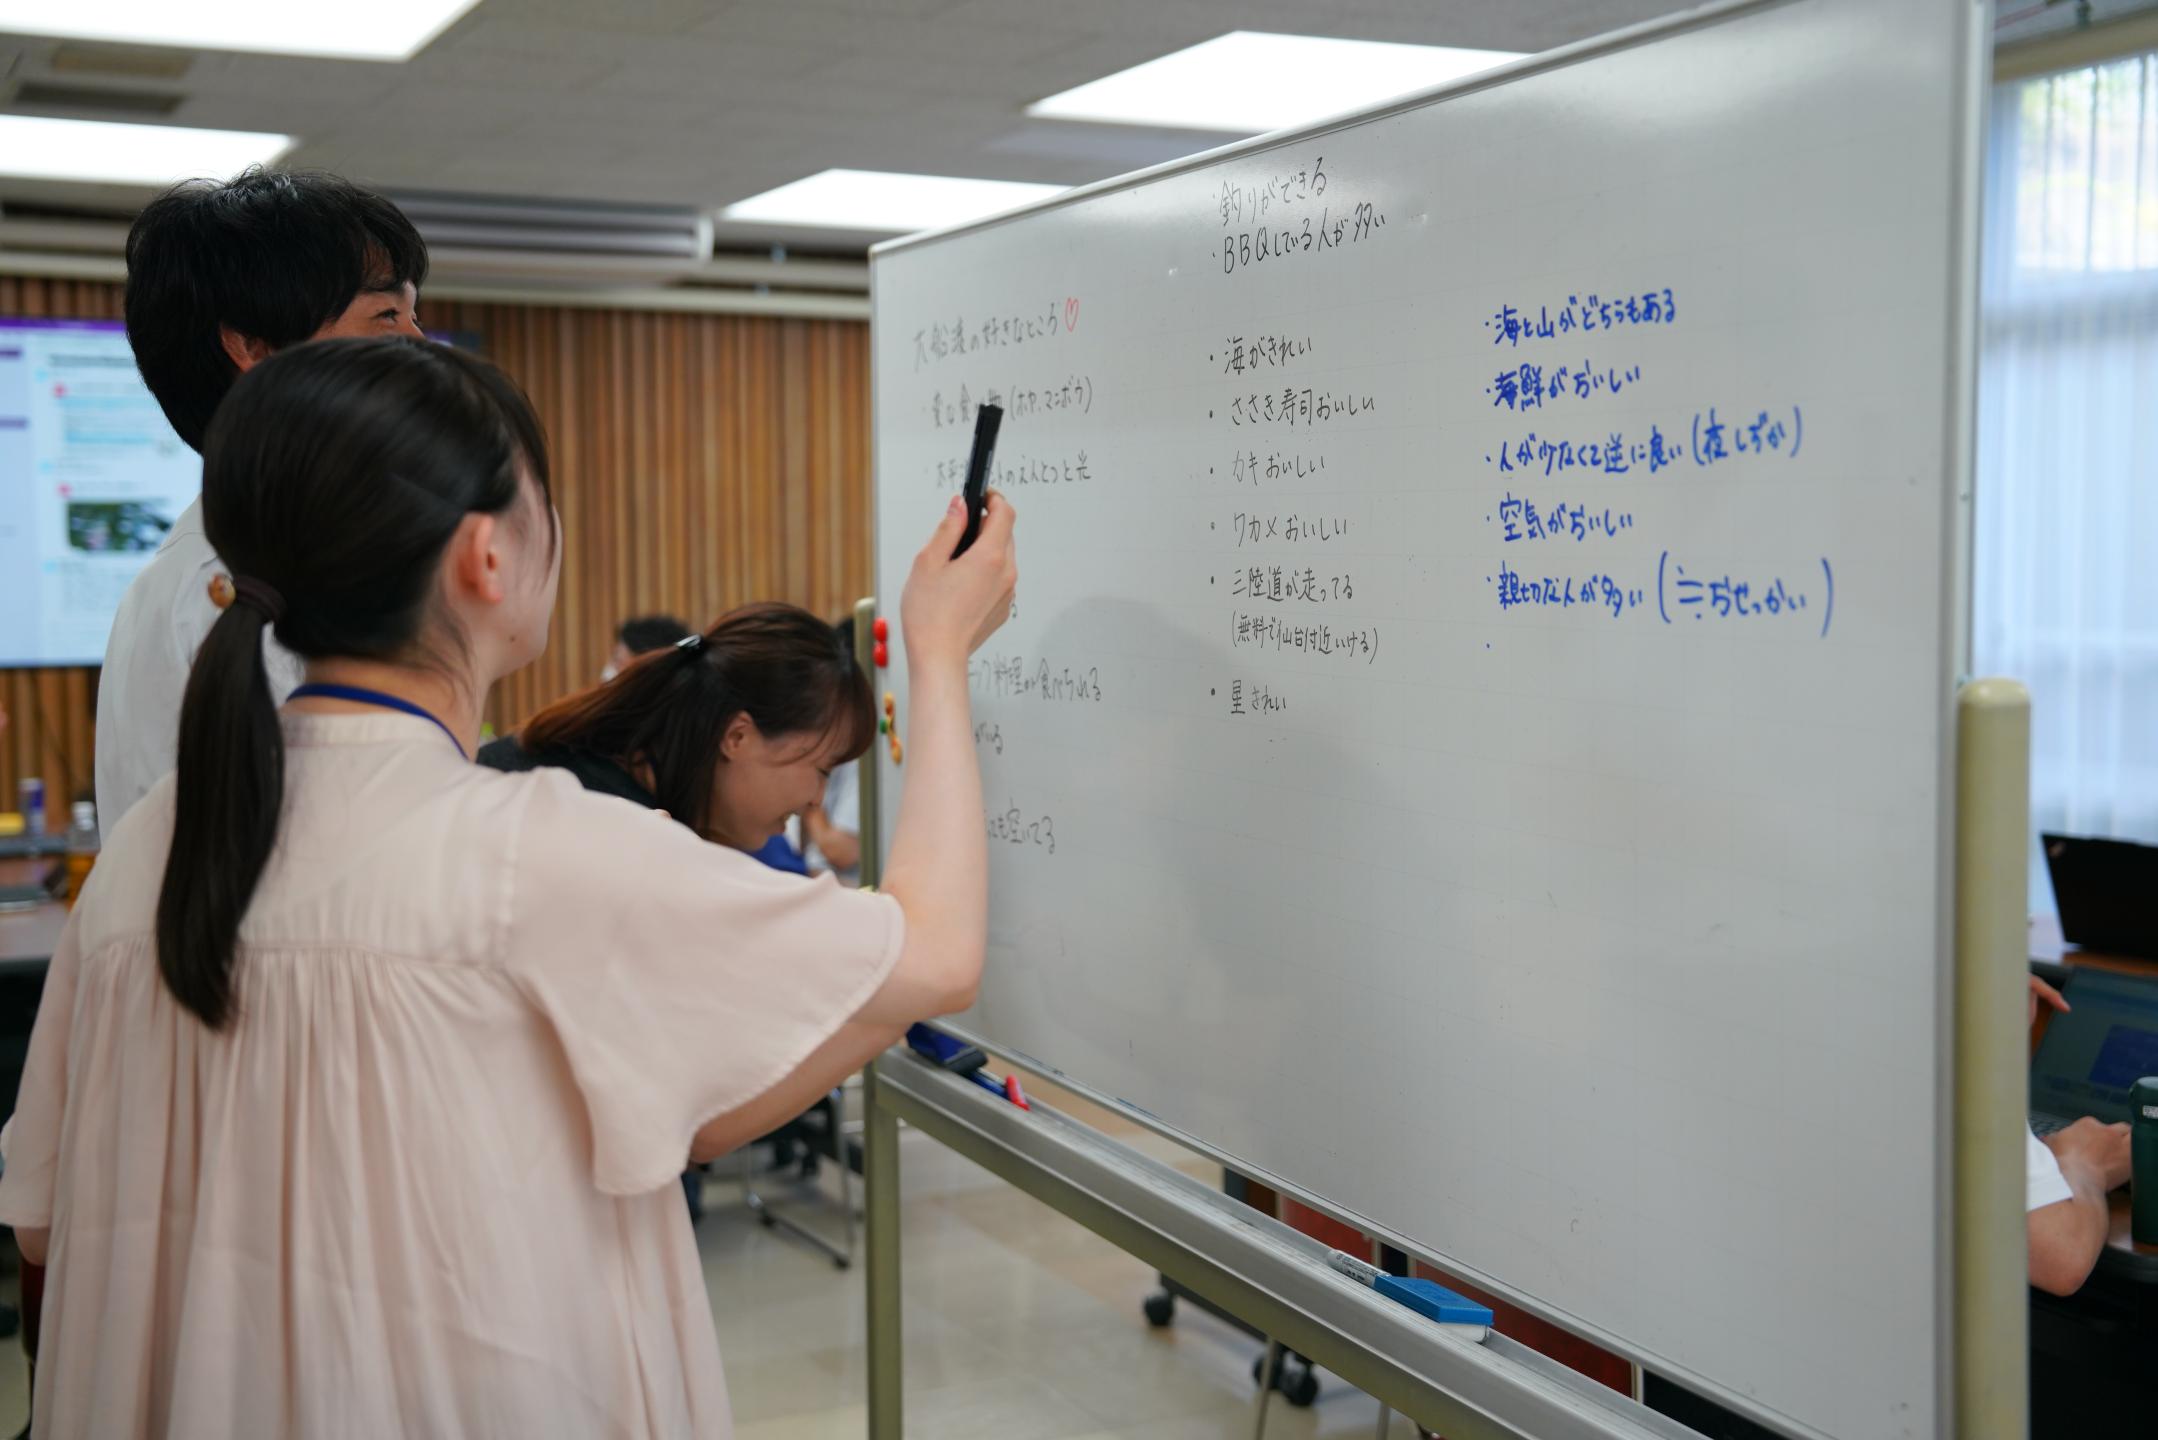 大船渡の好きなところ♡
・変な食べ物(ホヤ、マンボウ)
のえんとつと光
料理が食べられる
がいる
も空いてる
・釣りができる
・BBQしている人が多い
・海がきれい
・ささき寿司おいしい
・カキおいしい
・ワカメおいしい
・三陸道が走ってる
(無料で仙台付近いける)
・星きれい
・海と山がどちらもある
・海鮮がおいしい
・人が少なくて逆に良い(夜しずか)
・空気がおいしい
・親切な人が多い(≒おせっかい)
・